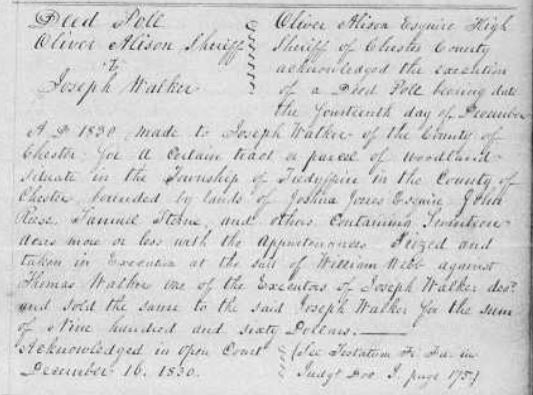 Deed Poll
Oliver Alison Sheriff
to
Joseph Walker
Oliver Alison Esquire High
Sheriff of Chester County
acknowledged the execution
of a Deed Poll bearing date
the fourteenth day of December
A D 1830 made to Joseph Walker of the County of
Chester for a certain tract a parcel of woodland
situate in the Township of Tredyffrin in the County of
Chester bounded by lands of Joshua Jones Esquire John
Rose, Samuel and others Containing Seventeen
acres more or less with the appurtenances Seized and
taken in Execution at the suit of William Webb against
Thomas Walker one of the Executors of Joseph Walker decd.
and sold the same to the said Joseph Walker for the sum
of Nine hundred and sixty Dollars.
Acknowledged in open Court
December 16. 1830.
(See Testatum Fi Fa in
Judgt Doc I. page 175)